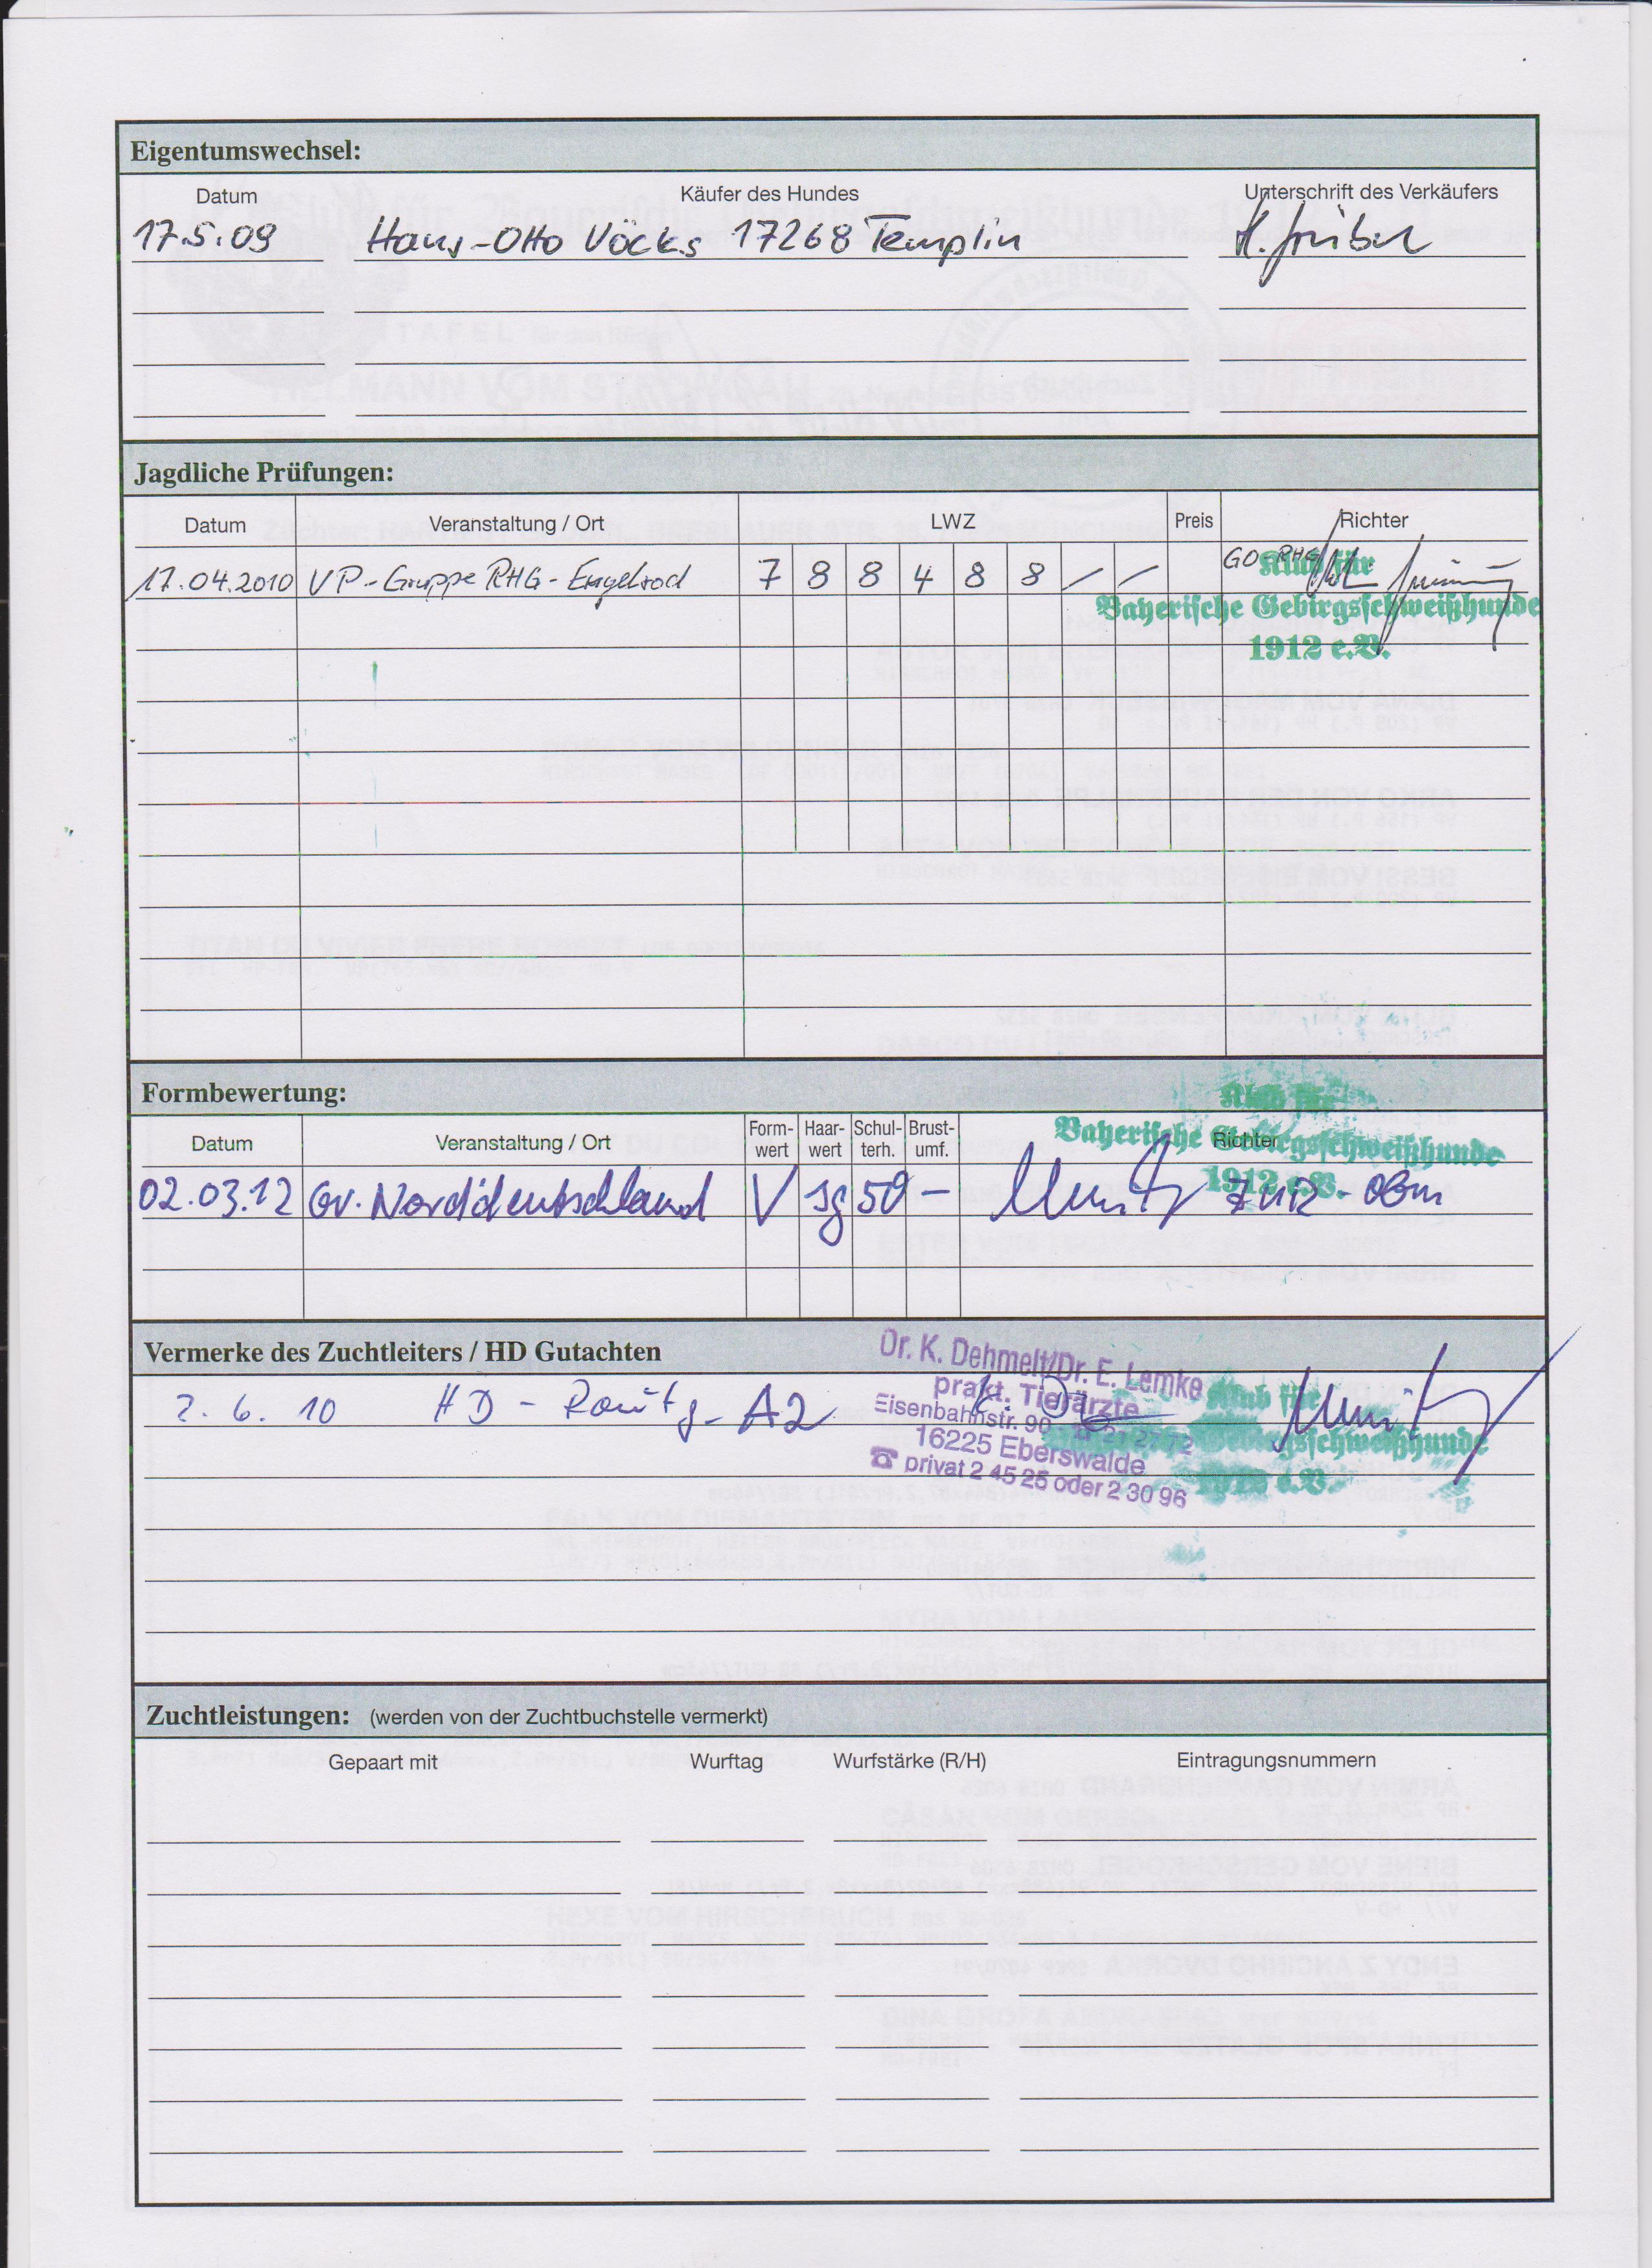 Eigentumswechsel:
Datum Käufer des Hundes Unterschrift des Verkäufers
17.5.09 Hans-Otto Vöcks 17268 Templin
Jagdliche Prüfungen:
Datum Veranstaltung / Ort LWZ Preis Richter
17.04.2010 VP-Gruppe RHG-Engelrod 7 8 8 4 8 8 / / GO RHG
Klub für
Bayerische Gebirgsschweißhunde
1912 e.V.
Formbewertung:
Klub für
Bayerische Gebirgsschweißhunde
1912 e.V.
Datum Veranstaltung / Ort Form-wert Haar-wert Schul-terh. Brust-umf. Richter
02.03.12 Gr. Norddeutschland V sg 50 -
Vermerke des Zuchtleiters / HD Gutachten
2. 6. 10 HD - A2
Dr. K. Dehmelt/Dr. E. Lemke
prakt. Tierärzte
Eisenbahnstr. 90 ☎ 21 27 72
16225 Eberswalde
☎ privat 2 45 25 oder 2 30 96
Klub für
Gebirgsschweißhunde
e.V.
Zuchtleistungen: (werden von der Zuchtbuchstelle vermerkt)
Gepaart mit Wurftag Wurfstärke (R/H) Eintragungsnummern